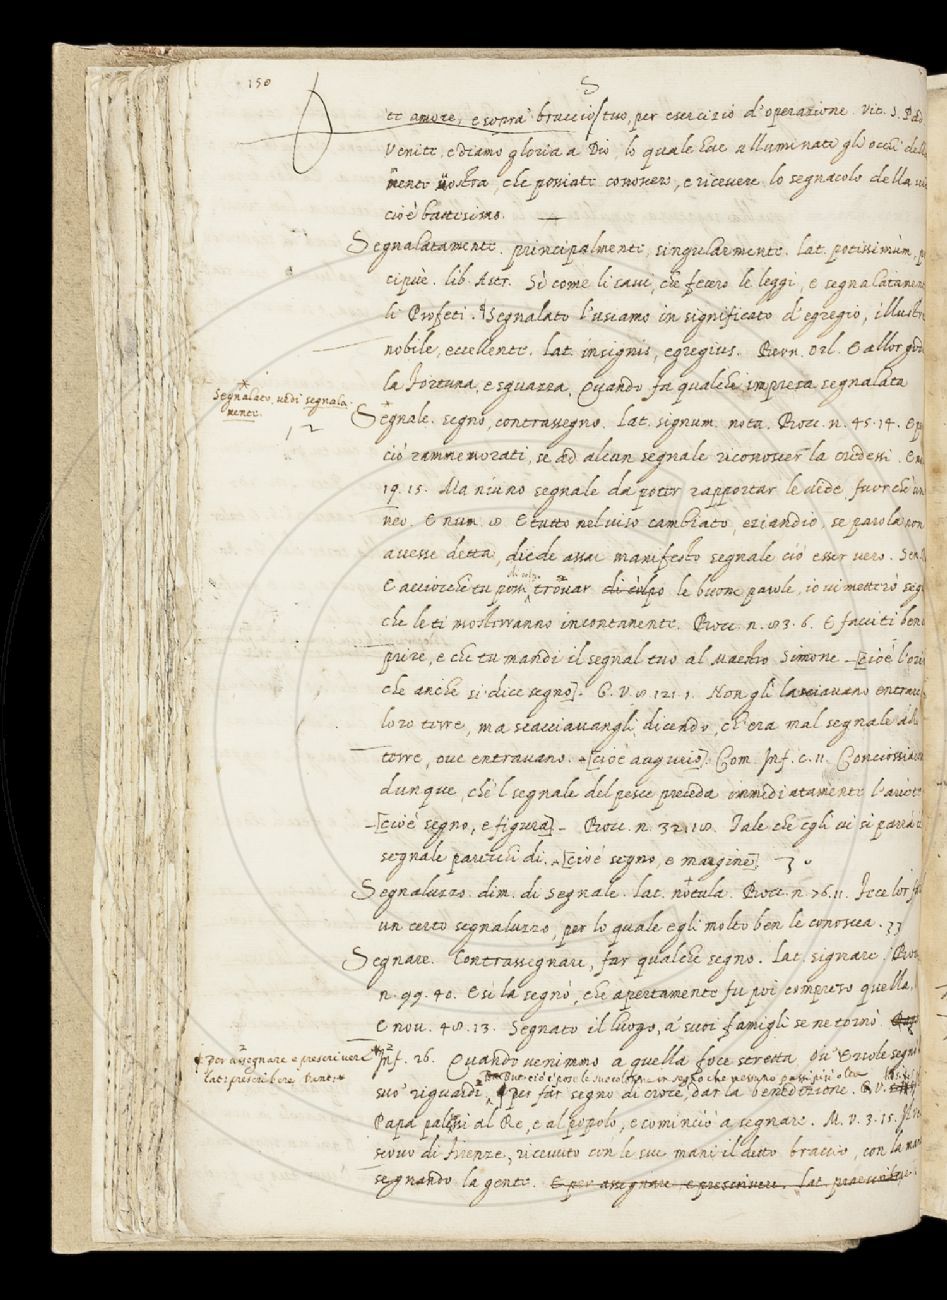 150
S
te amore, e sopra 'l braccio tuo, per esercizio d'operazione. Vit. S. Pad.
Venite, e diamo gloria a Dio, lo quale have alluminati gli occhi della
mente nostra, che possiate conoscere, e ricevere lo segnacolo della
cioè battesimo.
Segnalatamente. principalmente, singularmente. lat. potissimùm,
cipuè. lib. Astr. Sì come li savi, che fecero le leggi, e segnalatamente
li Profeti. Segnalato l'usiamo in significato d'egregio, illustre
nobile, eccellente. lat. insignis, egregius. Bern. Orl. E allor gode
la fortuna, e sguazza, Quando fa qualche impresa segnalata
Segnalato, vedi segnala-
mente.
1 2
Segnale. segno, contrassegno. lat. signum, nota. Bocc. n. 45. 14. E
ciò rammemorati, se ad alcun segnale riconoscer la credessi. E
19. 15. Ma niuno segnale da poter rapportar le vide, fuor ch'un
neo. E num. 8. E tutto nel viso cambiato, eziandio, se parola non
avesse detta, diede assai manifesto segnale ciò esser vero. Sen.
E acciocchè tu possi trovar di colpo le buone parole, io vi metterò
che le ti mosterranno incontanente. Bocc. n. 83. 6. E facciti ben
prire, e che tu mandi il segnal tuo al Maestro Simone -[cioè l'
che anche si dice segno]- G. V. 8. 121. 1. Non gli lasciavano entrare
loro terre, ma scacciavangli, dicendo, ch'era mal segnale
terre, ove entravano. -[cioè augurio]. Com. Inf. c. 11. Conciossia
dunque, che 'l segnale del pesce preceda immediatamente l'ariete
-[cioè segno, e figura]- Bocc. n. 32. 18. Tale che egli vi si parrà
segnale parecchi dì. -[cioè segno, e margine]. 3
Segnaluzzo. dim. di Segnale. lat. notula. Bocc. n. 76. 11. Fece lor
un certo segnaluzzo, per lo quale egli molto ben le conoscea. 33
Segnare. Contrassegnare, far qualche segno. lat. signare. Bocc.
n. 99. 40. E sì la segnò, che apertamente fu poi compreso quella,
E nov. 48. 13. Segnato il luogo, a' suoi famigli se ne tornò.
per assegnare e prescrivere
lat: prescribere
Inf. 26. Quando venimmo a quella foce stretta Ov' Ercole segnò
cioè pose le sue colonne in segno che nessuno passi più oltre
suo' riguardi, per far segno di croce, dar la benedizione. G. V.
Papa palesi al Re, e al popolo, e cominciò a segnare. M. V. 3. 15.
scovo di Firenze, ricevuto con le sue mani il detto braccio, con la mano
segnando la gente. E per assegnare e prescrivere. lat. praescribere